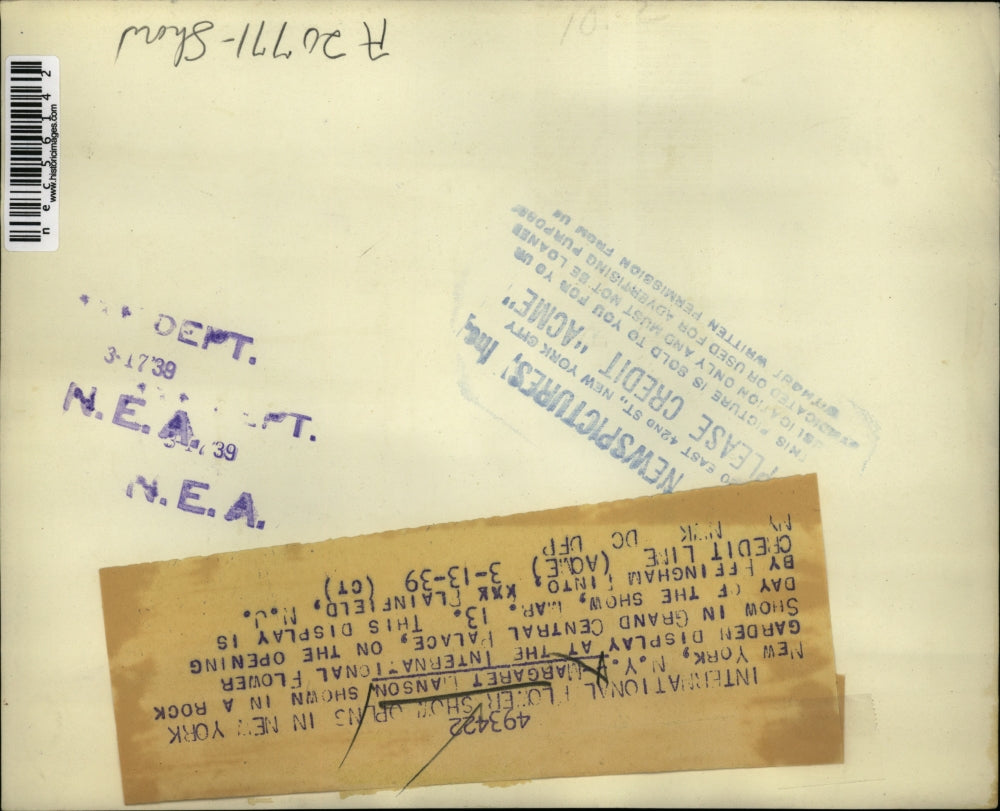 A 20771-Show
nec56142
www.historicimages.com
DEPT.
3-17'39
N.E.A.
PT.
39
N.E.A.
NEWSPICTURES, Inc.
EAST 42ND ST., NEW YORK CITY
PLEASE CREDIT "ACME"
THIS PICTURE IS SOLD TO YOU FOR YOUR
PUBLICATION ONLY AND MUST NOT BE LOANED
SYNDICATED OR USED FOR ADVERTISING PURPOSE
WITHOUT WRITTEN PERMISSION FROM US
493422
INTERNATIONAL FLOWER SHOW OPENS IN NEW YORK
NEW YORK, N.Y. MARGARET HANSON SHOWN IN A ROCK
GARDEN DISPLAY AT THE INTERNATIONAL FLOWER
SHOW IN GRAND CENTRAL PALACE, ON THE OPENING
DAY OF THE SHOW, MAR. 13. THIS DISPLAY IS
BY EFFINGHAM PINTO, PLAINFIELD, N.J.
CREDIT LINE (ACME) 3-13-39 (CT)
NY DC UFP